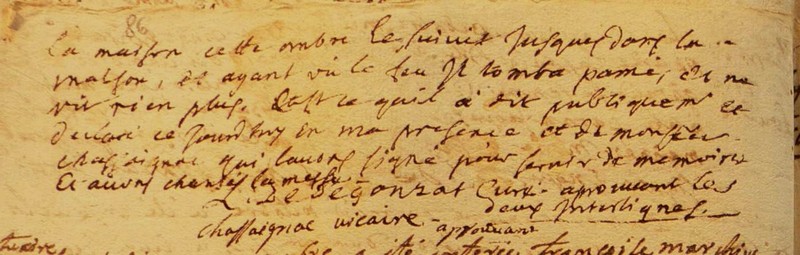 86
la maison cette ombre le suivit jusques dans la
maison, et ayant vû le feu Il tomba pamé, et ne
vit rien plus. C'est ce quil à dit publiquemt et
declaré ce Jourdhuy en ma presence et de monsieur
chassaignac qui lavons signé pour servir de memoire
Et avons chantés la messe.
De Segonzat Curé approuvant les
deux Interlignes.
chassaignac vicaire approuvant